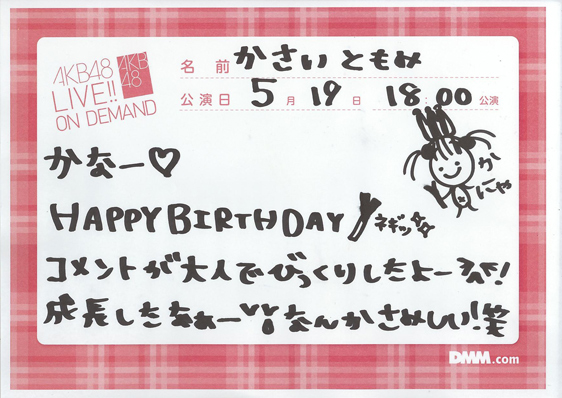 AKB48
LIVE!!
ON DEMAND
AKB
48
名前 かさい ともみ
公演日 5月19日 18:00公演
かなー♡
かにゃ
HAPPY BIRTHDAY ネギッ☆☆
コメントが大人でびっくりしたよー!
成長したなぁー なんかさみしい!笑
DMM.com